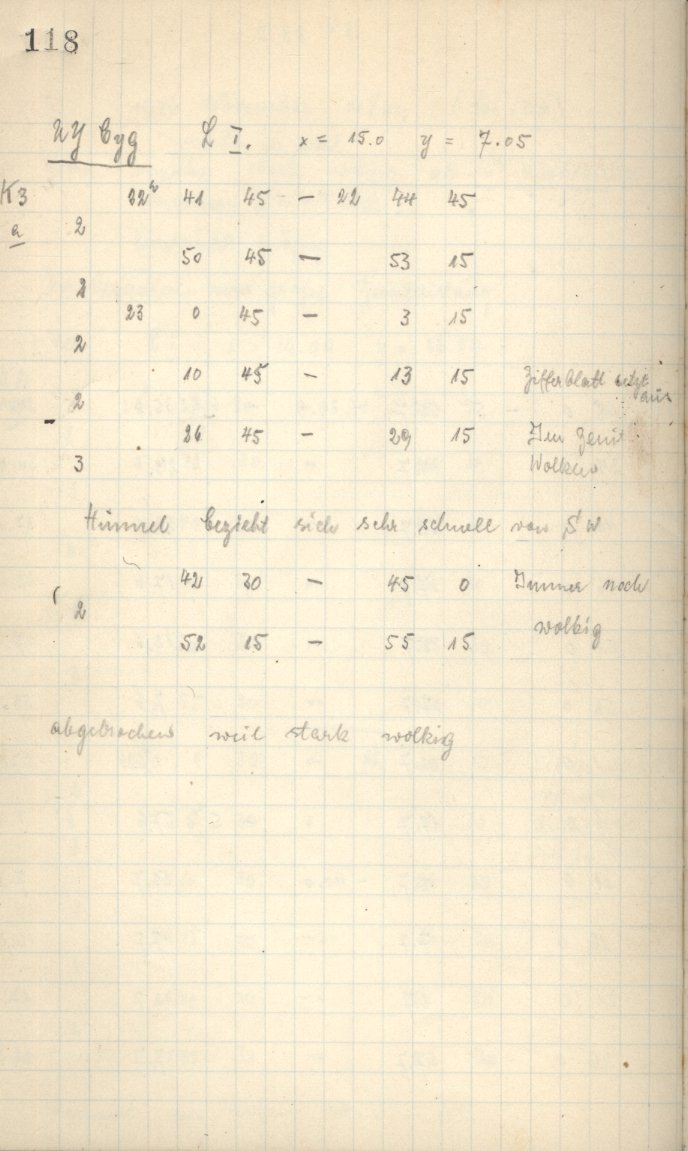 118
Cyg L I. x = 15.0 y = 7.05
K3 22h 41 45 – 22 44 45
a 2
50 45 – 53 15
2
23 0 45 – 3 15
2
10 45 – 13 15 Zifferblatt setzt aus
2
26 45 – 29 15 Im Zenit
3 Wolken
Himmel bezieht sich sehr schnell von SW
42 30 – 45 0 Immer noch
( 2 wolkig
52 15 – 55 15
abgebrochen weil stark wolkig